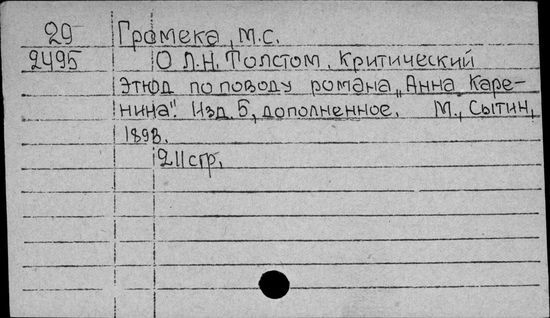 29 Громека, М.С.
2495 О Л.Н. Толстом. Критический
этюд по поводу романа „Анна Каре-
нина". Изд. 5, дополненное. М., Сытин,
1893.
211 стр.